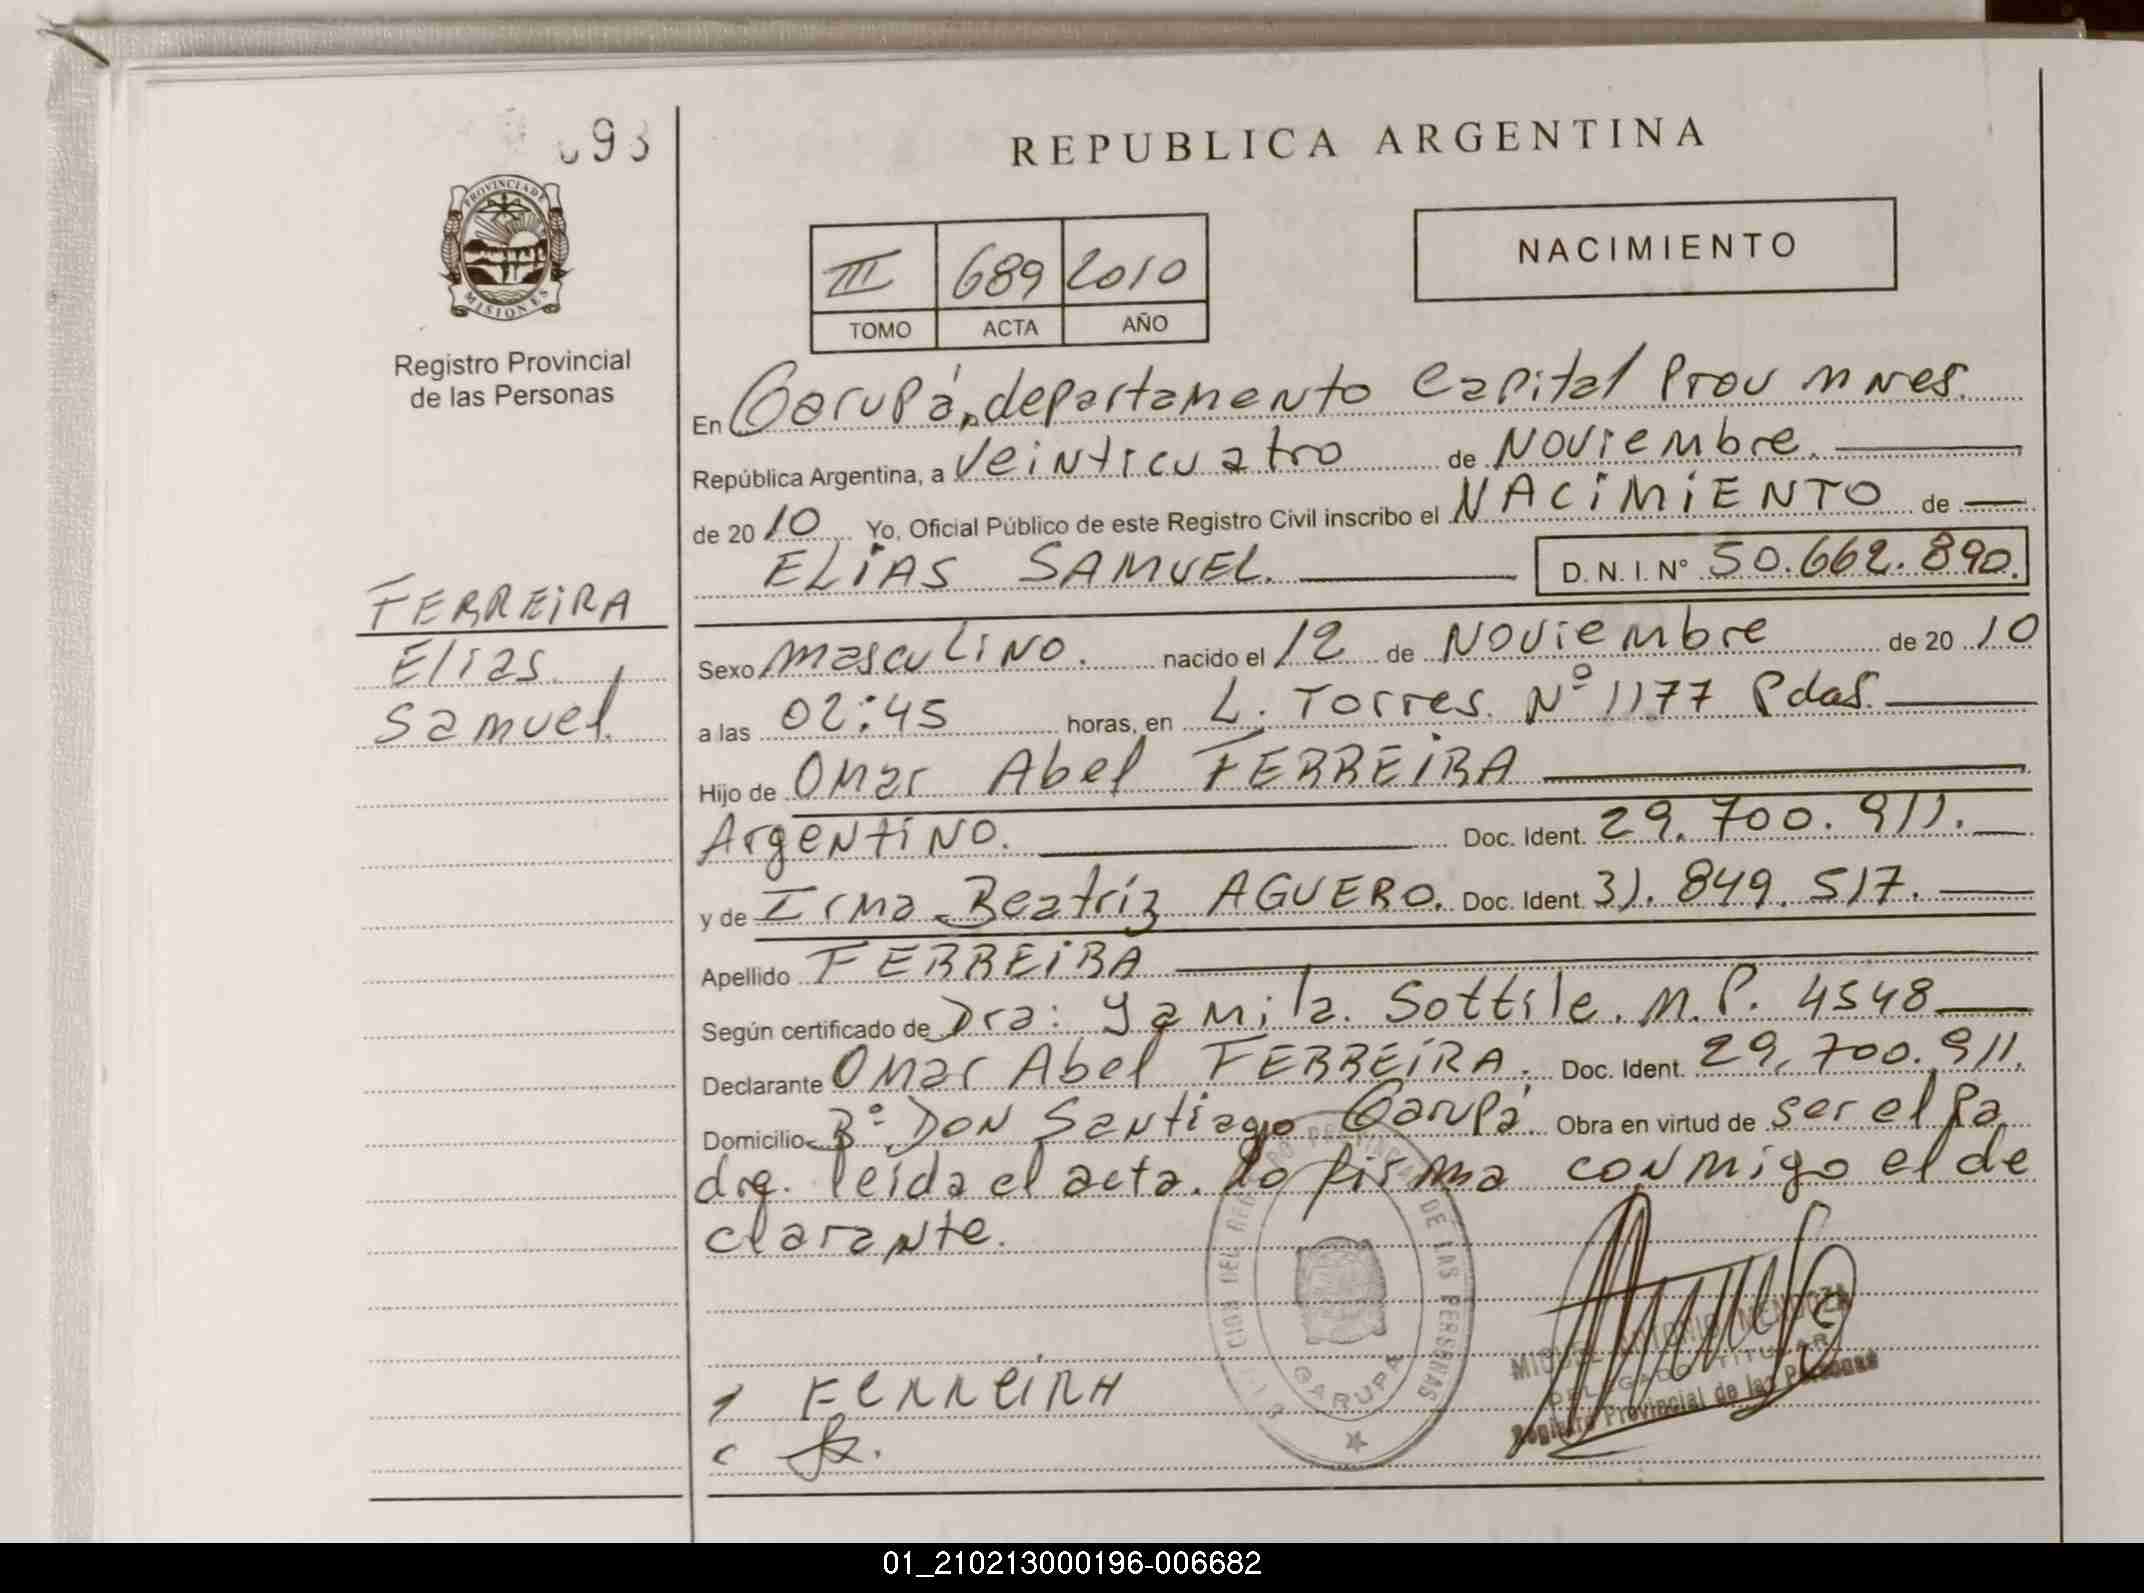 093
PROVINCIA DE
MISIONES
Registro Provincial
de las Personas
FERREIRA
Elias
Samuel.
REPUBLICA ARGENTINA
III 689 2010
TOMO ACTA AÑO
NACIMIENTO
En Garupá, departamento Capital Prov Mnes.
República Argentina, a veinticuatro de Noviembre.
de 2010 Yo, Oficial Público de este Registro Civil inscribo el NACIMIENTO de
ELIAS SAMUEL. D. N. I. Nº 50.662.890.
Sexo masculino. nacido el 12 de Noviembre de 2010
a las 02:45 horas, en L. Torres. Nº 1177 Pdas.
Hijo de Omar Abel FERREIRA
Argentino. Doc. Ident. 29.700.911.
y de Irma Beatríz AGUERO. Doc. Ident. 31.849.517.
Apellido FERREIRA
Según certificado de Dra: Yamila. Sottile. M.P. 4548
Declarante Omar Abel FERREIRA. Doc. Ident. 29.700.911.
Domicilio Bº Don Santiago Garupá. Obra en virtud de ser el Pa
dre. leída el acta. lo firma conmigo el de
clarante.
DEL REGISTRO PROVINCIAL DE LAS PERSONAS
GARUPA
MIGUEL ANTONIO MENDOZA
DELEGADO TITULAR
Registro Provincial de las Personas
FERREIRA
01_210213000196-006682